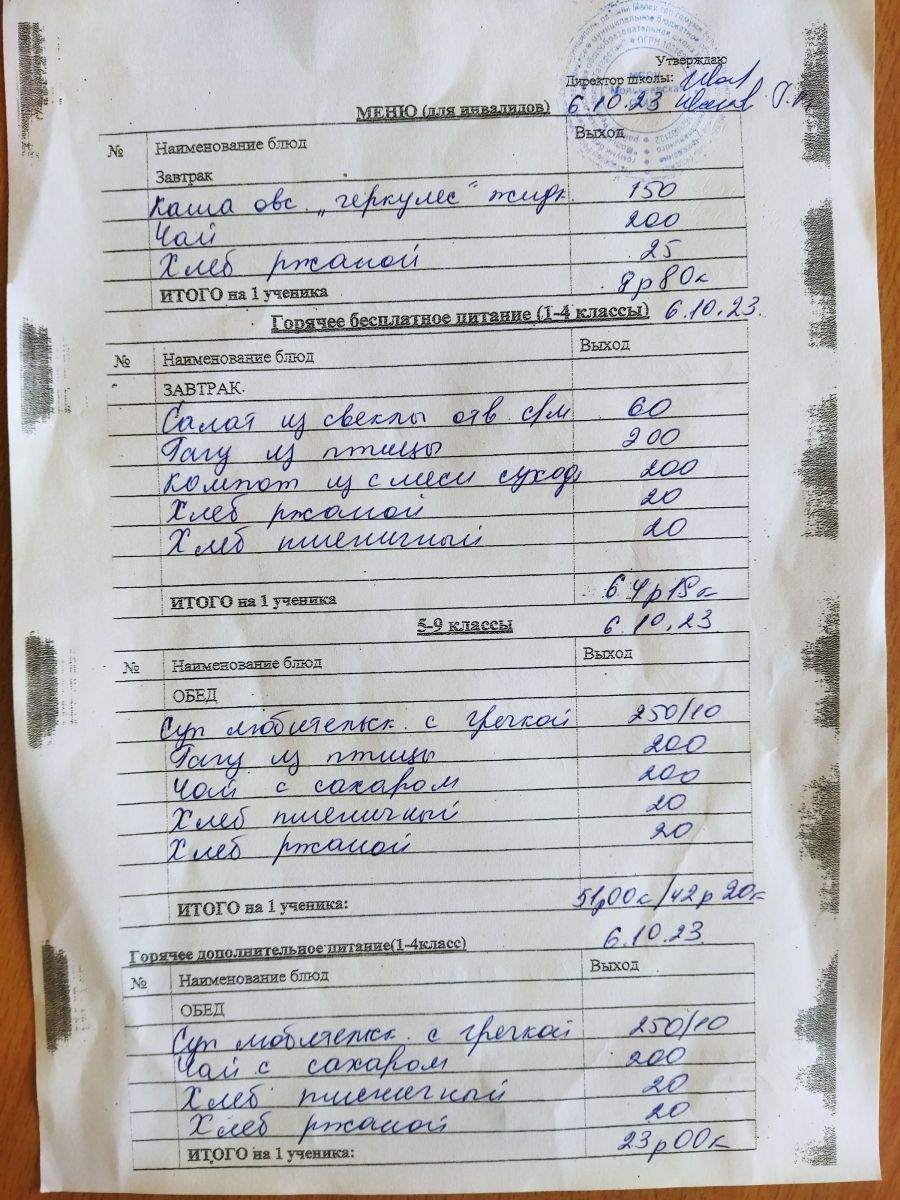 Утверждаю
Директор школы:
МЕНЮ (для инвалидов) 6.10.23
№ Наименование блюд Выход
Завтрак
Каша овс. „геркулес" жидк 150
Чай 200
Хлеб ржаной 25
ИТОГО на 1 ученика 8р80к
Горячее бесплатное питание (1-4 классы) 6.10.23.
№ Наименование блюд Выход
ЗАВТРАК.
Салат из свеклы отв с/м 60
Рагу из птицы 200
Компот из смеси сухоф 200
Хлеб ржаной 20
Хлеб пшеничный 20
ИТОГО на 1 ученика
5-9 классы 6.10.23
№ Наименование блюд Выход
ОБЕД
Суп любительск. с гречкой 250/10
Рагу из птицы 200
Чай с сахаром 200
Хлеб пшеничный 20
Хлеб ржаной 20
ИТОГО на 1 ученика: 51р00к/42р20к
Горячее дополнительное питание(1-4класс) 6.10.23
№ Наименование блюд Выход
ОБЕД
Суп любительск. с гречкой 250/10
Чай с сахаром 200
Хлеб пшеничный 20
Хлеб ржаной 20
ИТОГО на 1 ученика: 23р00к